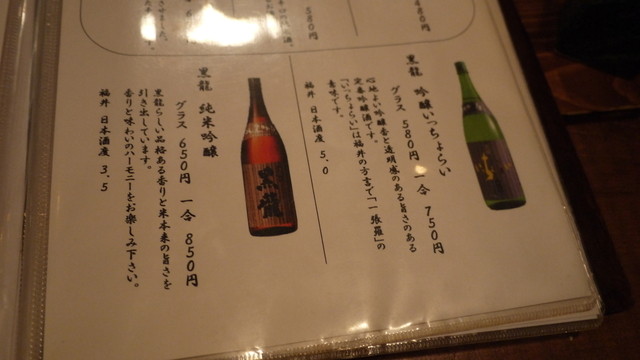 480円
580円
黒龍 吟醸いっちょらい
グラス 580円 一合 750円
心地よい吟醸香と透明感のある旨さのある
定番吟醸酒です。
「いっちょらい」は福井の方言で「一張羅」の
意味です。
福井 日本酒度 5.0
黒龍 純米吟醸
グラス 650円 一合 850円
黒龍らしい品格ある香りと米本来の旨さを
引き出しています。
香りと味わいのハーモニーをお楽しみ下さい。
福井 日本酒度 3.5
黒龍